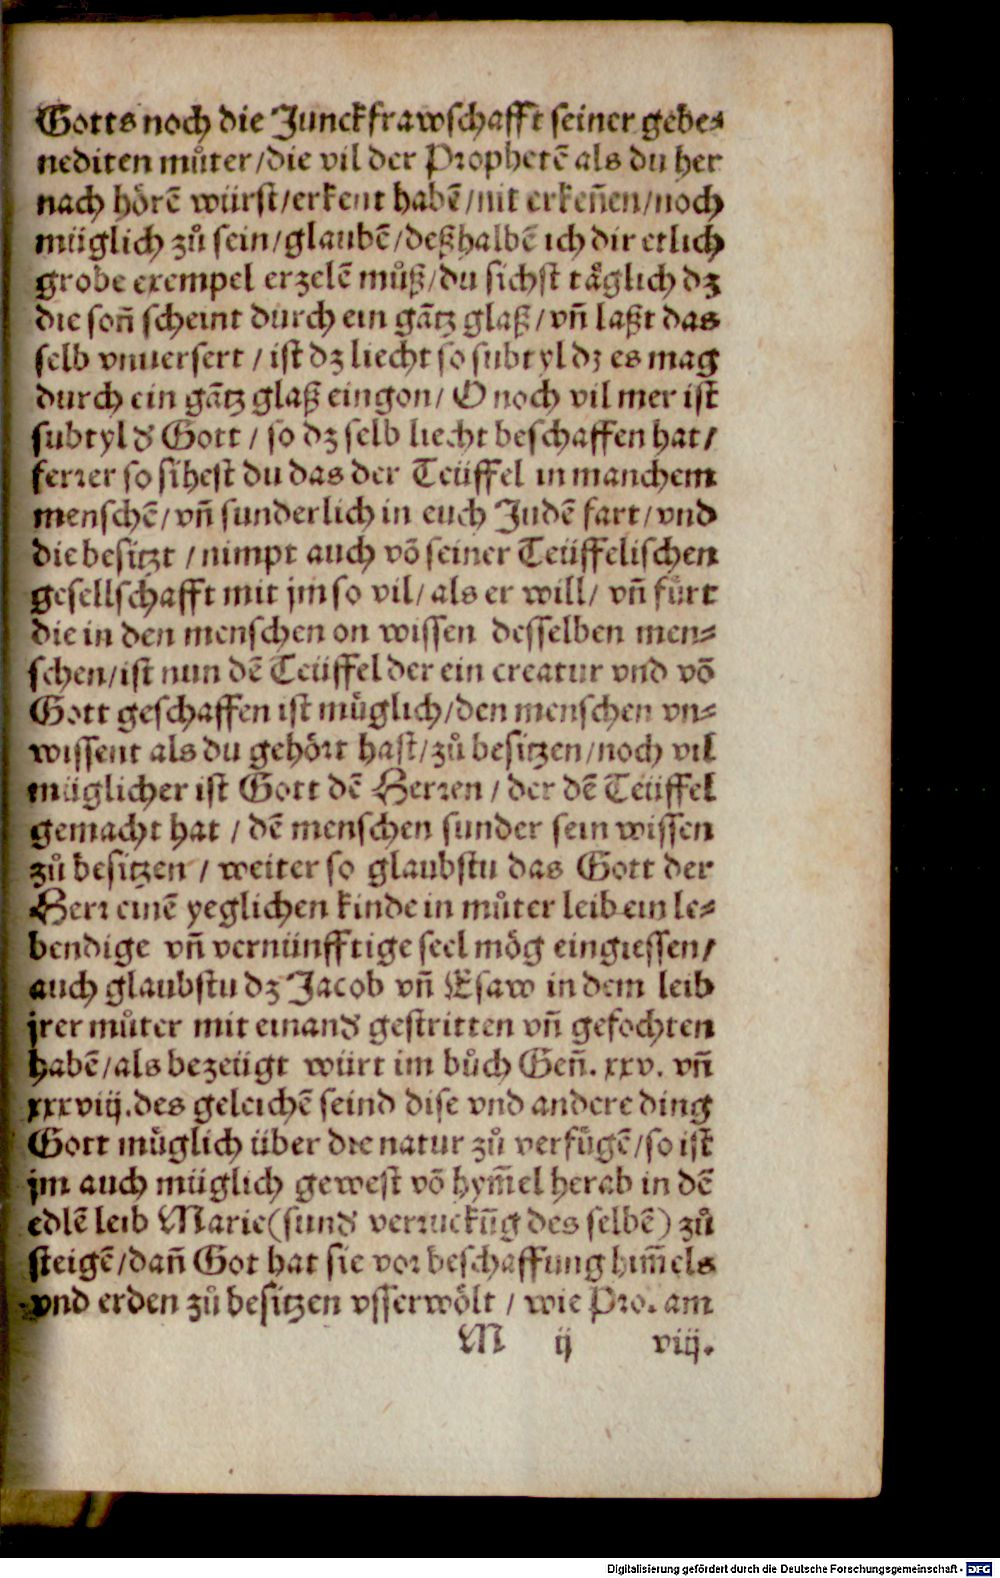 Gotts noch die Junckfrawschafft seiner gebe⸗
nediten můter/die vil der Prophetē als du her
nach hörē würst/erkent habē/nit erkeñen/noch
müglich zů sein/glaubē/deßhalbē ich dir etlich
grobe exempel erzelē můß/du sichst täglich dz
die soñ scheint durch ein gātz glaß/vñ laßt das
selb vnuersert / ist dz liecht so subtyl dz es mag
durch ein gātz glaß eingon/ O noch vil mer ist
subtyl d' Gott / so dz selb liecht beschaffen hat/
ferrer so sihest du das der Teüffel in manchem
menschē/vñ sunderlich in euch Judē fart/vnd
die besitzt /nimpt auch vō seiner Teüffelischen
gesellschafft mit jm so vil/ als er will/ vñ fürt
die in den menschen on wissen desselben men⸗
schen/ist nun dē Teüffel der ein creatur vnd vō
Gott geschaffen ist müglich/den menschen vn⸗
wissent als du gehört hast/zů besitzen/noch vil
müglicher ist Gott dē Herren / der dē Teüffel
gemacht hat / dē menschen sunder sein wissen
zů besitzen / weiter so glaubstu das Gott der
Herr einē yeglichen kinde in můter leib ein le⸗
bendige vñ vernünfftige seel mög eingiessen/
auch glaubstu dz Jacob vñ Esaw in dem leib
jrer můter mit einand' gestritten vñ gefochten
habē/als bezeügt würt im bůch Geñ. xxv. vñ
xxxviij.des geleichē seind dise vnd andere ding
Gott müglich über die natur zů verfügē/so ist
jm auch müglich gewest vō hym̄el herab in dē
edlē leib Marie(sund' verruckūg des selbē) zů
steigē/dañ Got hat sie vor beschaffung him̄els
vnd erden zů besitzen vsserwölt / wie Pro. am
M ij viij.
Digitalisierung gefördert durch die Deutsche Forschungsgemeinschaft - DFG